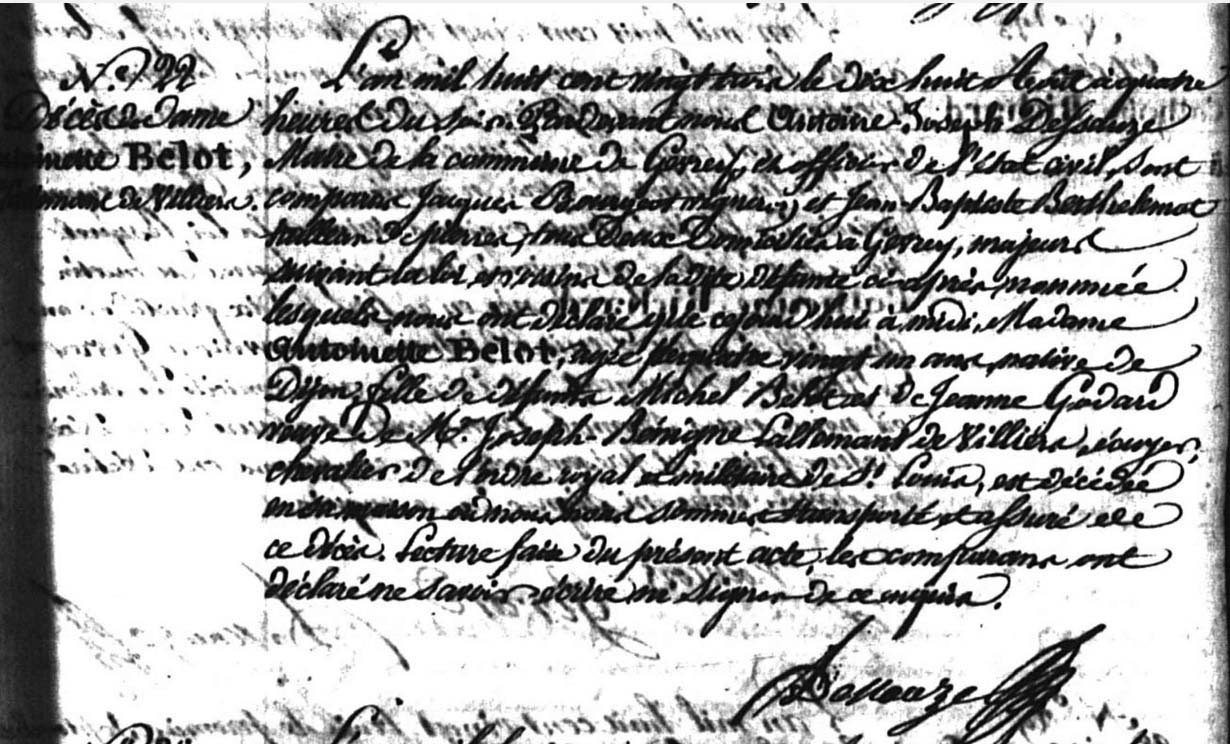 N.º 22
Décès de Dame
Antoinette Belot,
Lallemant de Villiers.
L'an mil huit cent vingt trois le dix huit Août à quatre
heures du soir. Pardevant nous Antoine Joseph Dessauze
Maire de la commune de Gevrey, et officier de l'état civil, sont
comparus Jacques vigneron, et Jean Baptiste Berthelemot
tailleur de pierres, tous deux domiciliés à Gevrey, majeurs
suivant la loi et voisins de ladite défunte ci après nommée
lesquels nous ont déclaré que cejourd'hui à midi, Madame
Antoinette Belot, agée de quatre vingt un ans, native de
Dijon, fille de défunts Michel Belot et de Jeanne Godard
veuve de Mr. Joseph Bénigne Lallemant de Villiers, écuyer,
chevalier de l'ordre royal et militaire de St. Louis, est décédée
en sa maison où nous nous sommes transporté et assuré de
ce décès. Lecture faite du présent acte, les comparans ont
déclaré ne savoir écrire ni signer de ce enquis.
Dessauze